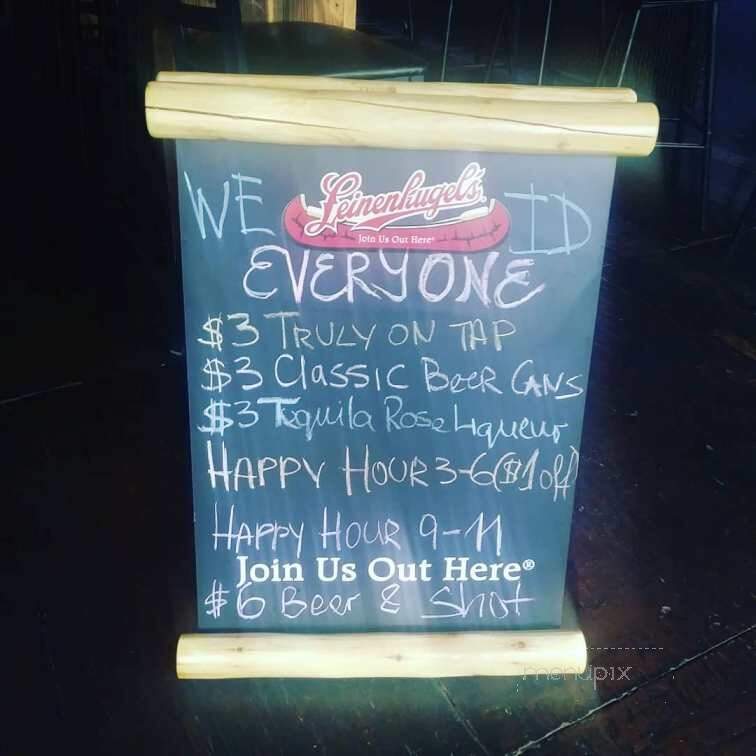 WE Leinenkugel's® ID
Join Us Out Here®
EVERYONE
$3 TRULY ON TAP
$3 Classic Beer CANS
$3 Tequila Rose Liqueur
HAPPY HOUR 3-6 ($1 off)
HAPPY HOUR 9-11
Join Us Out Here®
$6 Beer & Shot
menupix